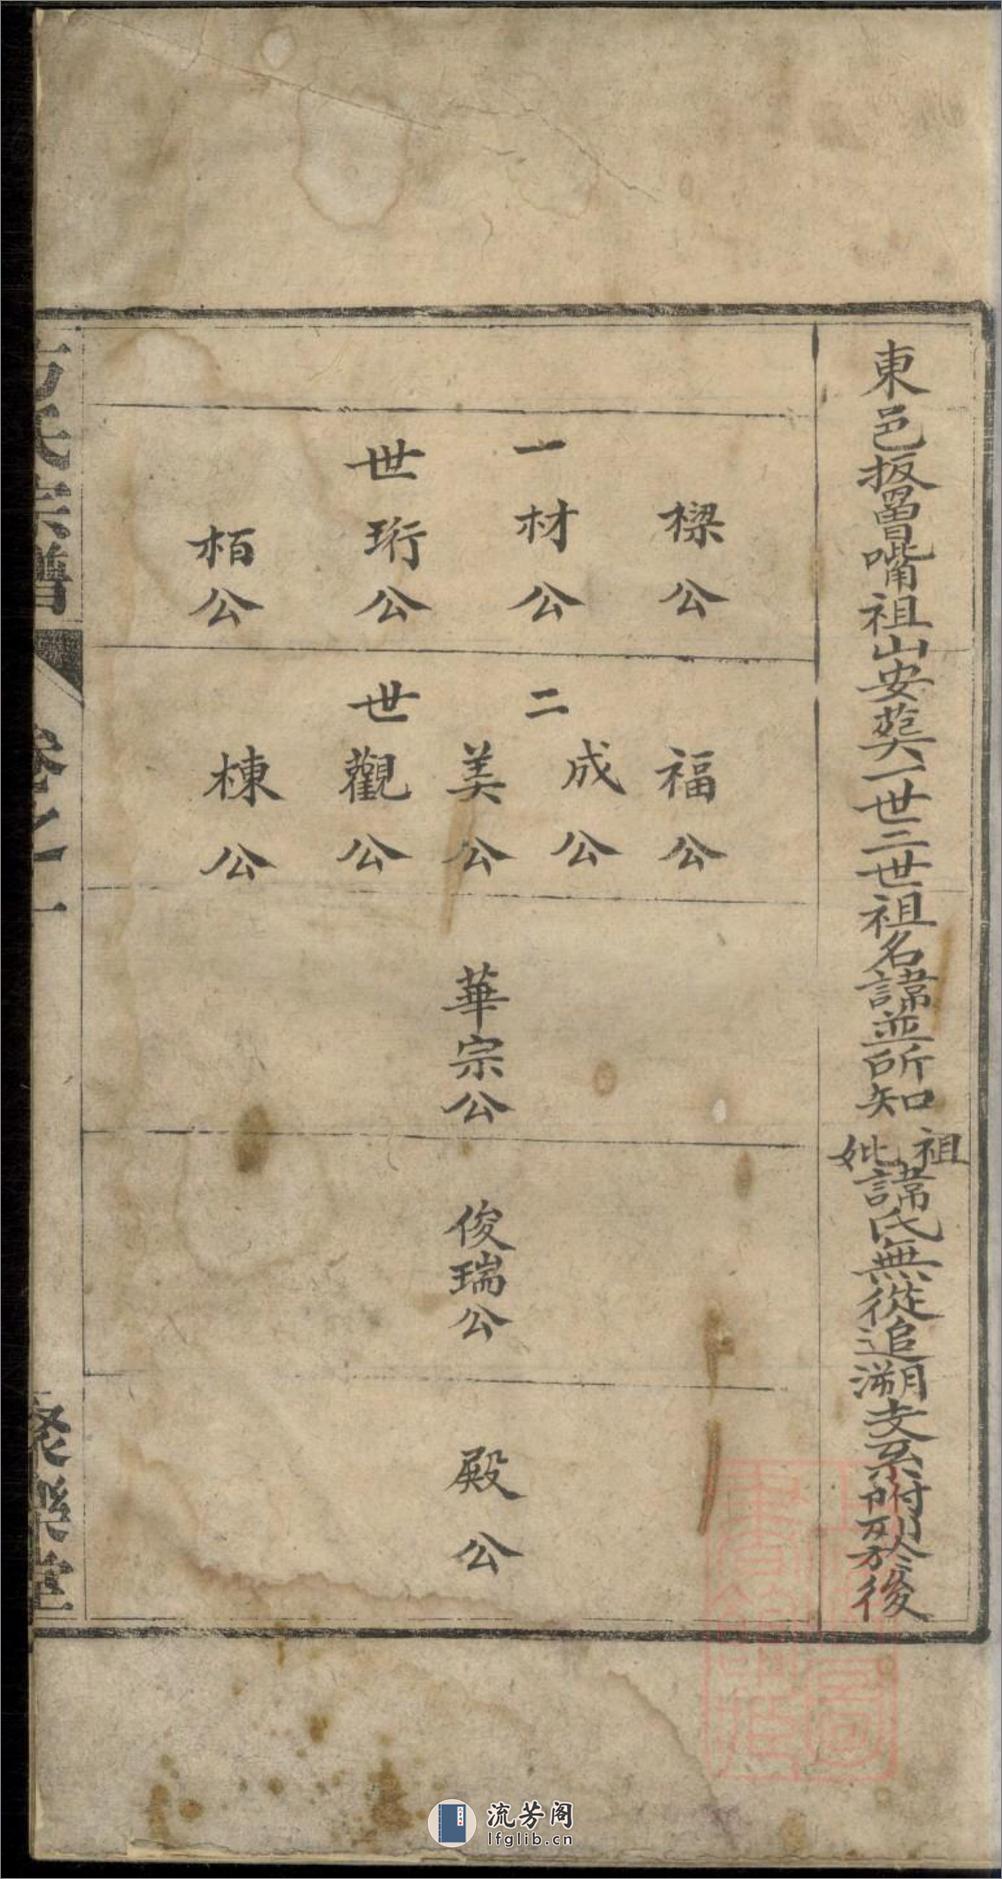 東邑扳罾嘴祖山安葬一世二世祖名諱並所知祖妣諱氏無從追溯支系附列於後
一世
樑公
材公
珩公
栢公
二世
福公
成公
美公
觀公
棟公
華宗公
俊瑞公
殿公
氏宗譜
卷之一
樂堂
流芳阁
lfglib.cn